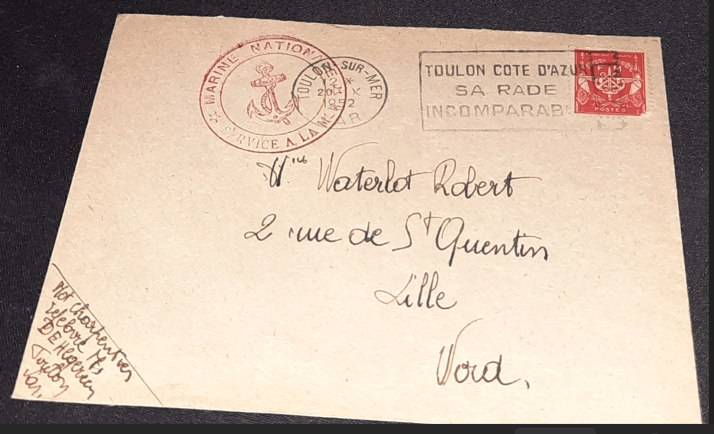 MARINE NATIONALE
SERVICE A LA MER
TOULON-SUR-MER
VAR
TOULON COTE D'AZUR
SA RADE
INCOMPARABLE
POSTES
Waterlot Robert
2 rue de St Quentin
Lille
Nord.
Mot charpentier
Lefebvre
Toulon
Var.